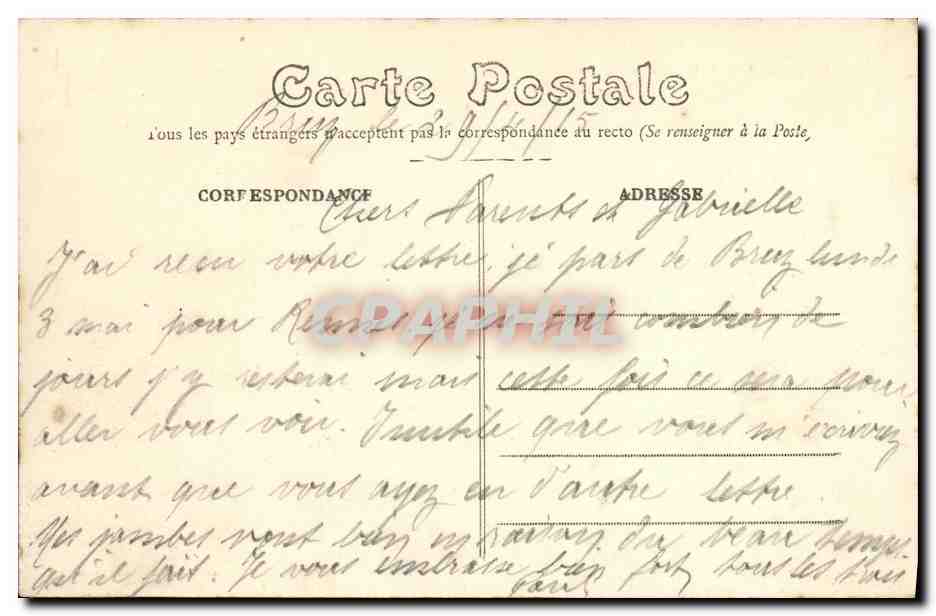 Carte Postale
Bruz le 29/4/15
Tous les pays étrangers n'acceptent pas la correspondance au recto (Se renseigner à la Poste)
CORRESPONDANCE
ADRESSE
Chers Parents et Gabrielle
J'ai reçu votre lettre, je pars de Bruz lundi
3 mai pour Rennes je ne sais combien de
jours j'y resterai mais cette fois ce sera pour
aller vous voir. Inutile que vous m'écriviez
avant que vous ayez eu d'autre lettre.
Mes jambes vont bien en raison du beau temps
qu'il fait. Je vous embrasse bien fort tous les trois
Paul
CPAPHIL